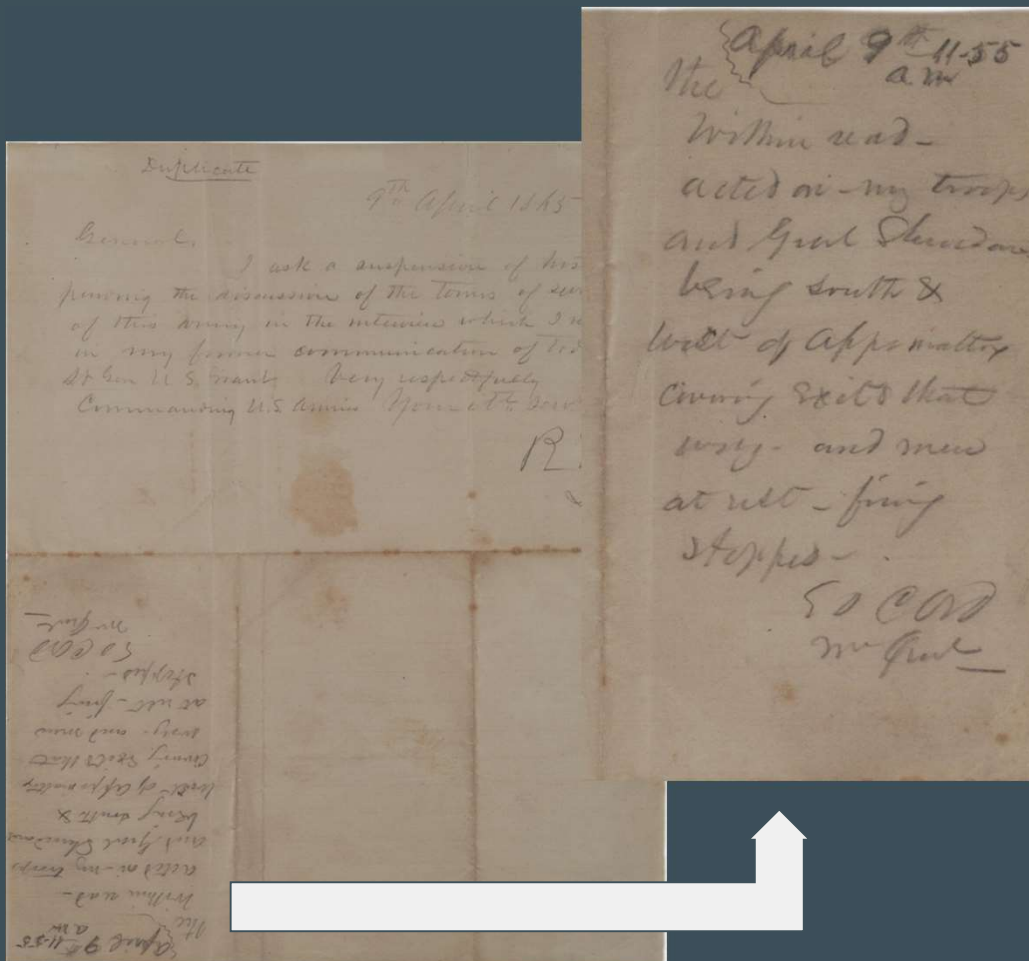 Duplicate
9th April 1865
General,
I ask a suspension of hos
pending the discussion of the terms of sur
of this army in the interview which I r
in my former communication of tod
Lt Gen U.S. Grant Very respectfully
Commanding U.S Armies Your obt. serv
R
April 9th 11-55
a.m
The
Within read-
acted on - my troops
and Genl Sheridans
being south &
West of Appomattox
covering exits that
way - and men
at rest - firing
stopped -
E O C Ord
M Genl
April 9th 11-55
a.m
The
Within read-
acted on - my troops
and Genl Sheridans
being south &
West of Appomattox
covering exits that
way - and men
at rest - firing
stopped -
E O C Ord
M Genl